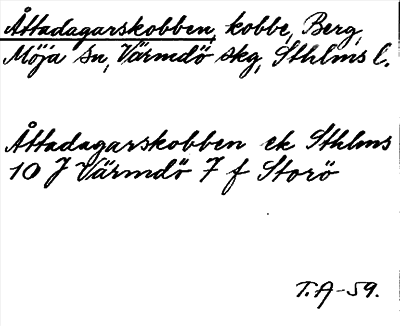 Åttadagarskobben, kobbe, Berg,
Möja sn, Värmdö skg, Sthlms l.
Åttadagarskobben ek Sthlms
10 J Värmdö 7 f Storö
T.A-59.